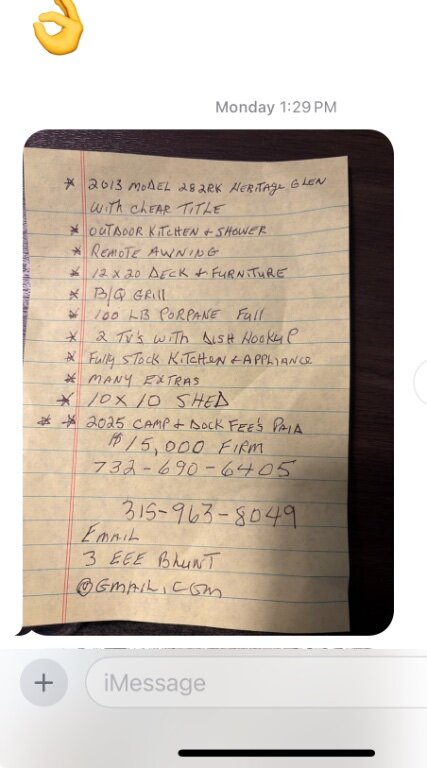 Monday 1:29 PM
* 2013 MODEL 282RK HERITAGE GLEN
WITH CLEAR TITLE
* OUTDOOR KITCHEN & SHOWER
* REMOTE AWNING
* 12 X 20 DECK & FURNITURE
* B/Q GRILL
* 100 LB PORPANE FULL
* 2 TV'S WITH DISH HOOKUP
* FULLY STOCK KITCHEN & APPLIANCE
* MANY EXTRAS
* 10 X 10 SHED
* * 2025 CAMP & DOCK FEE'S PAID
$15,000 FIRM
732-690-6405
315-963-8049
EMAIL
3 EEE BHUNT
@GMAIL.COM
iMessage